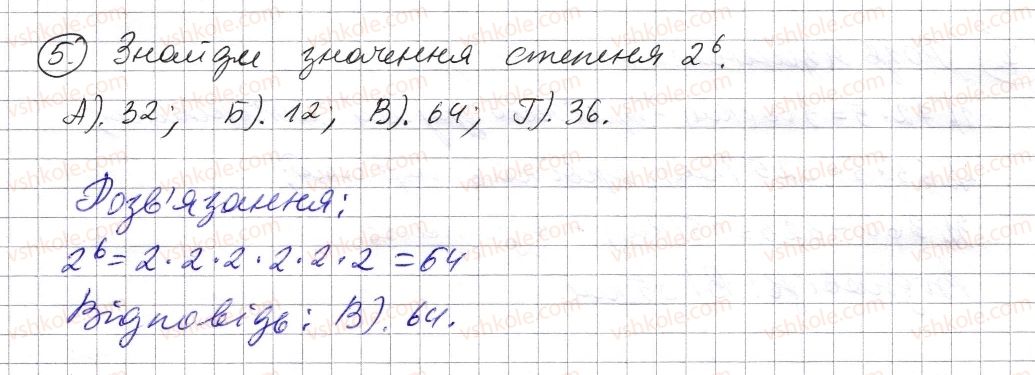 5. Знайди значення степеня 2⁶.
А). 32; Б). 12; В). 64; Г). 36.
Розв'язання:
2⁶ = 2 · 2 · 2 · 2 · 2 · 2 = 64
Відповідь: В). 64.